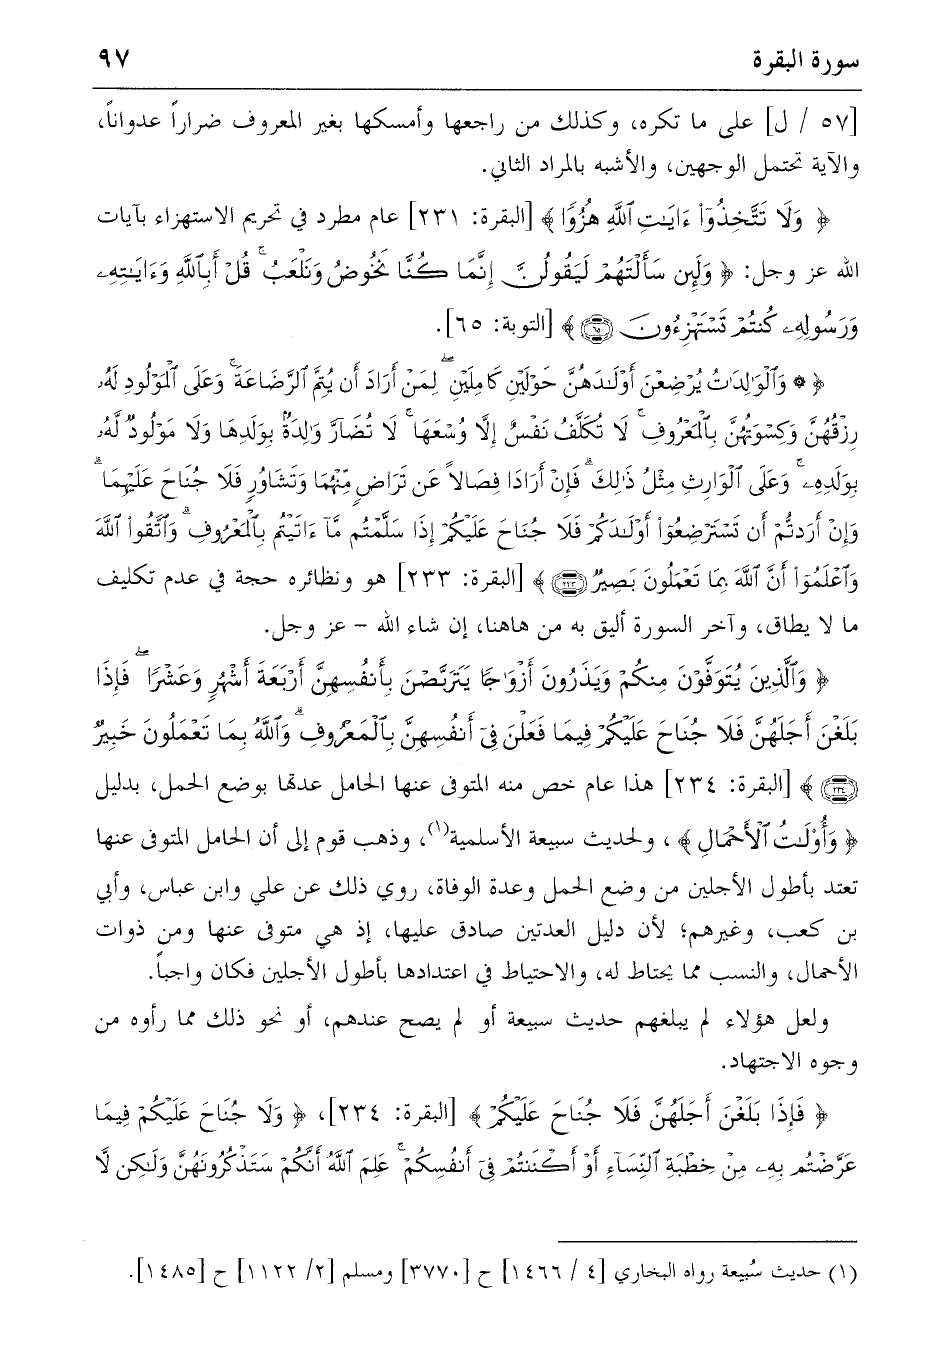 سورة البقرة ٩٧
[٥٧ / ل] على ما تكره، وكذلك من راجعها وأمسكها بغير المعروف ضراراً عدواناً،
والآية تحتمل الوجهين، والأشبه بالمراد الثاني.
﴿ وَلَا تَتَّخِذُوٓاْ ءَايَٰتِ ٱللَّهِ هُزُوٗا ﴾ [البقرة: ٢٣١] عام مطرد في تحريم الاستهزاء بآيات
الله عز وجل: ﴿ وَلَئِن سَأَلۡتَهُمۡ لَيَقُولُنَّ إِنَّمَا كُنَّا نَخُوضُ وَنَلۡعَبُۚ قُلۡ أَبِٱللَّهِ وَءَايَٰتِهِۦ
وَرَسُولِهِۦ كُنتُمۡ تَسۡتَهۡزِءُونَ ٦٥ ﴾ [التوبة: ٦٥].
﴿ ۞ وَٱلۡوَٰلِدَٰتُ يُرۡضِعۡنَ أَوۡلَٰدَهُنَّ حَوۡلَيۡنِ كَامِلَيۡنِۖ لِمَنۡ أَرَادَ أَن يُتِمَّ ٱلرَّضَاعَةَۚ وَعَلَى ٱلۡمَوۡلُودِ لَهُۥ
رِزۡقُهُنَّ وَكِسۡوَتُهُنَّ بِٱلۡمَعۡرُوفِۚ لَا تُكَلَّفُ نَفۡسٌ إِلَّا وُسۡعَهَاۚ لَا تُضَآرَّ وَٰلِدَةُۢ بِوَلَدِهَا وَلَا مَوۡلُودٞ لَّهُۥ
بِوَلَدِهِۦۚ وَعَلَى ٱلۡوَارِثِ مِثۡلُ ذَٰلِكَۗ فَإِنۡ أَرَادَا فِصَالًا عَن تَرَاضٖ مِّنۡهُمَا وَتَشَاوُرٖ فَلَا جُنَاحَ عَلَيۡهِمَاۗ
وَإِنۡ أَرَدتُّمۡ أَن تَسۡتَرۡضِعُوٓاْ أَوۡلَٰدَكُمۡ فَلَا جُنَاحَ عَلَيۡكُمۡ إِذَا سَلَّمۡتُم مَّآ ءَاتَيۡتُم بِٱلۡمَعۡرُوفِۗ وَٱتَّقُواْ ٱللَّهَ
وَٱعۡلَمُوٓاْ أَنَّ ٱللَّهَ بِمَا تَعۡمَلُونَ بَصِيرٞ ٢٣٣ ﴾ [البقرة: ٢٣٣] هو ونظائره حجة في عدم تكليف
ما لا يطاق، وآخر السورة أليق به من هاهنا، إن شاء الله – عز وجل.
﴿ وَٱلَّذِينَ يُتَوَفَّوۡنَ مِنكُمۡ وَيَذَرُونَ أَزۡوَٰجٗا يَتَرَبَّصۡنَ بِأَنفُسِهِنَّ أَرۡبَعَةَ أَشۡهُرٖ وَعَشۡرٗاۖ فَإِذَا
بَلَغۡنَ أَجَلَهُنَّ فَلَا جُنَاحَ عَلَيۡكُمۡ فِيمَا فَعَلۡنَ فِيٓ أَنفُسِهِنَّ بِٱلۡمَعۡرُوفِۗ وَٱللَّهُ بِمَا تَعۡمَلُونَ خَبِيرٞ
٢٣٤ ﴾ [البقرة: ٢٣٤] هذا عام خص منه المتوفى عنها الحامل عدتها بوضع الحمل، بدليل
﴿ وَأُوْلَٰتُ ٱلۡأَحۡمَالِ ﴾ ، ولحديث سبيعة الأسلمية(١)، وذهب قوم إلى أن الحامل المتوفى عنها
تعتد بأطول الأجلين من وضع الحمل وعدة الوفاة، روي ذلك عن علي وابن عباس، وأبي
بن كعب، وغيرهم؛ لأن دليل العدتين صادق عليها، إذ هي متوفى عنها ومن ذوات
الأحمال، والنسب مما يحتاط له، والاحتياط في اعتدادها بأطول الأجلين فكان واجباً.
ولعل هؤلاء لم يبلغهم حديث سبيعة أو لم يصح عندهم، أو نحو ذلك مما رأوه من
وجوه الاجتهاد.
﴿ فَإِذَا بَلَغۡنَ أَجَلَهُنَّ فَلَا جُنَاحَ عَلَيۡكُمۡ ﴾ [البقرة: ٢٣٤]، ﴿ وَلَا جُنَاحَ عَلَيۡكُمۡ فِيمَا
عَرَّضۡتُم بِهِۦ مِنۡ خِطۡبَةِ ٱلنِّسَآءِ أَوۡ أَكۡنَنتُمۡ فِيٓ أَنفُسِكُمۡۚ عَلِمَ ٱللَّهُ أَنَّكُمۡ سَتَذۡكُرُونَهُنَّ وَلَٰكِن لَّا
(١) حديث سُبيعة رواه البخاري [٤ / ١٤٦٦] ح [٣٧٧٠] ومسلم [٢/ ١١٢٢] ح [١٤٨٥].